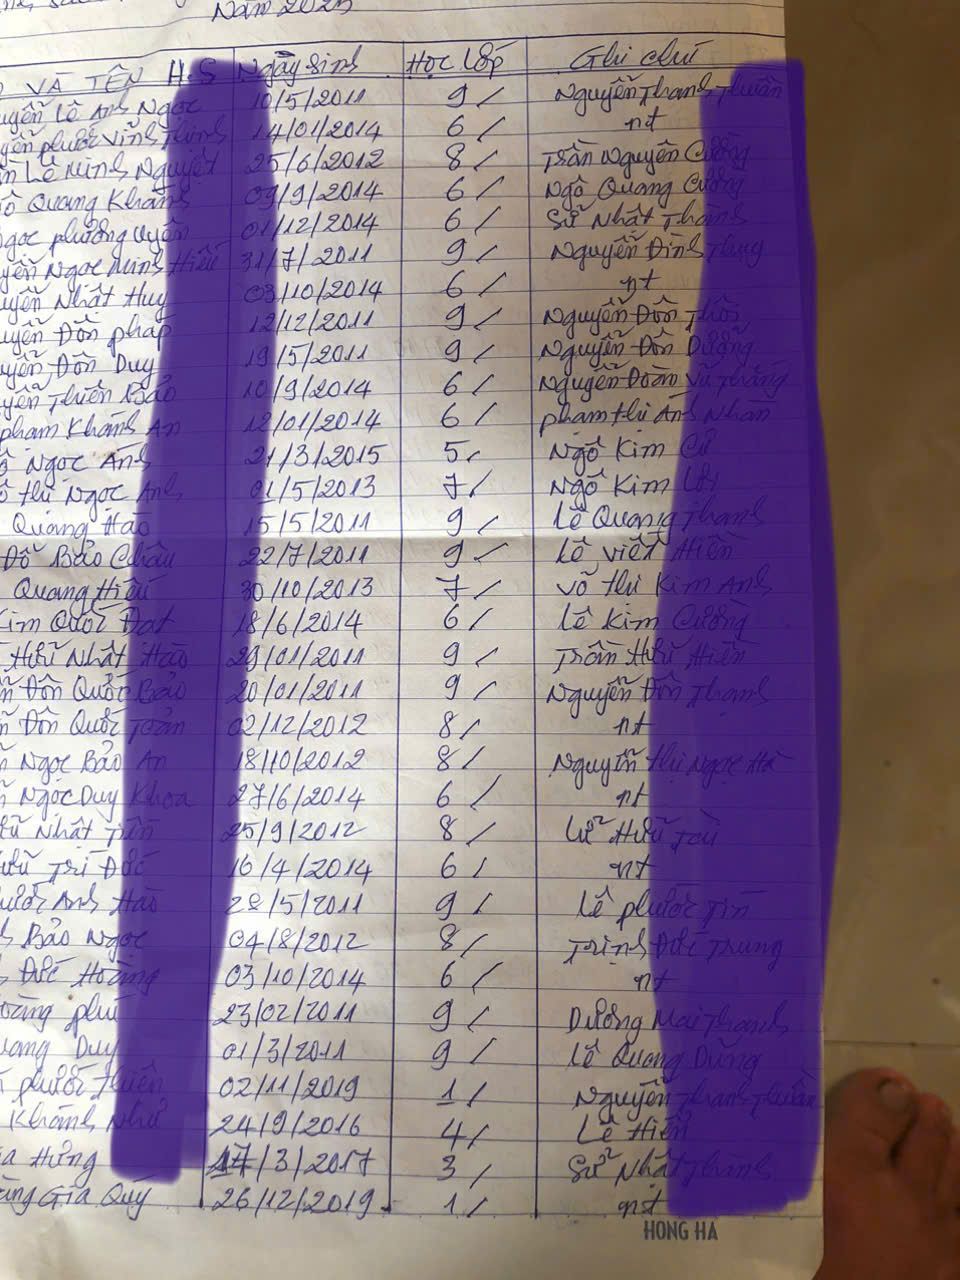 Năm 2025
VÀ TÊN H.S Ngày Sinh Học Lớp Ghi chú
Lê Anh Ngọc 10/5/2011 9 / Nguyễn Thanh Thuần
phước Vĩnh Thịnh 14/01/2014 6 / nt
Lê Minh Nguyệt 25/6/2012 8 / Trần Nguyên Cường
Quang Khánh 09/9/2014 6 / Ngô Quang Cường
Ngọc phương Uyên 01/12/2014 6 / Sử Nhật Thành
Ngọc Minh Hiếu 31/7/2011 9 / Nguyễn Đình Thung
Nhật Huy 03/10/2014 6 / nt
Đôn pháp 12/12/2011 9 / Nguyễn Đôn Thôi
Đôn Duy 19/5/2011 9 / Nguyễn Đôn Dưỡng
Thiên Bảo 10/9/2014 6 / Nguyễn Đoàn Vũ Thắng
phạm Khánh An 12/01/2014 6 / phạm thị Ánh Nhàn
Ngọc Anh 21/3/2015 5 / Ngô Kim Cư
thị Ngọc Anh 01/5/2013 7 / Ngô Kim
Quang Hào 15/5/2011 9 / Lê Quang Thanh
Đỗ Bảo Châu 22/7/2011 9 / Lê Viết Hiền
Quang Hiếu 30/10/2013 7 / Võ thị Kim Anh
Kim Quốc Đạt 18/6/2014 6 / Lê Kim Cường
Hữu Nhật Hào 29/01/2011 9 / Trần Hữu Hiền
Đôn Quốc Bảo 20/01/2011 9 / Nguyễn Đôn Thanh
Đôn Quốc Toản 02/12/2012 8 / nt
Ngọc Bảo An 18/10/2012 8 / Nguyễn thị Ngọc Hà
Ngọc Duy Khoa 27/6/2014 6 / nt
Nhật Tiến 25/9/2012 8 / Lư Hữu Tài
Trí Đức 16/4/2014 6 / nt
Anh Hào 28/5/2011 9 / Lê phước Tin
Bảo Ngọc 04/8/2012 8 / Trịnh Đức Trung
Đức Hoàng 03/10/2014 6 / nt
phú 23/02/2011 9 / Dương Mai Thanh
Duy 01/3/2011 9 / Lê Quang Dũng
phước Thiên 02/11/2019 1 / Nguyễn Thanh Thuần
Khánh Như 24/9/2016 4 / Lê Hiền
Hưng 17/3/2017 3 / Sử Nhật Thành
Gia Quý 26/12/2019 1 / nt
HONG HA